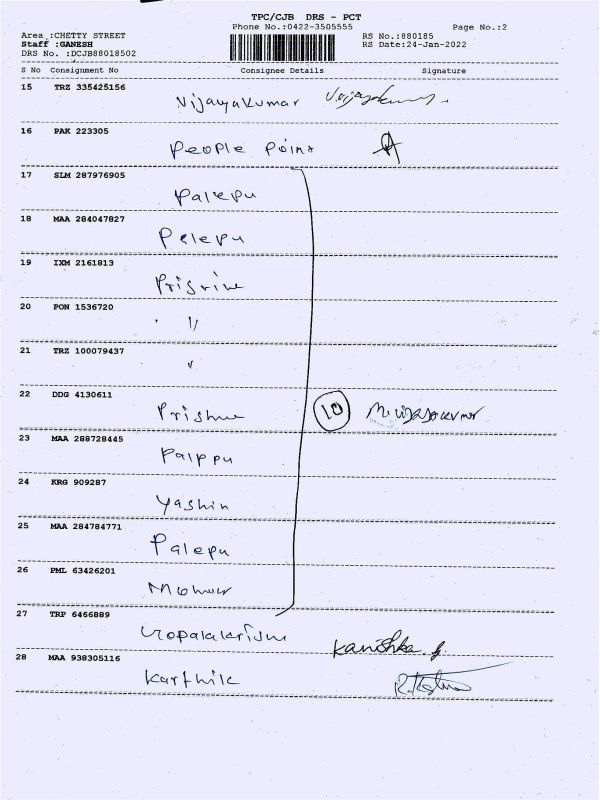 TPC/CJB DRS - PCT
Phone No.:0422-3505555 Page No.:2
Area :CHETTY STREET RS No.:880185
Staff :GANESH RS Date:24-Jan-2022
DRS No. :DCJB88018502
S No Consignment No Consignee Details Signature
15 TRZ 335425156
Vijayakumar
16 PAK 223305
People Point
17 SLM 287976905
Palepu
18 MAA 284047827
Palepu
19 IXM 2161813
20 PON 1536720
"
21 TRZ 100079437
"
22 DDG 4130611
10
23 MAA 288728445
24 KRG 909287
Yashin
25 MAA 284784771
Palepu
26 PML 63426201
27 TRP 6466889
Kanishka.
28 MAA 938305116
Karthik